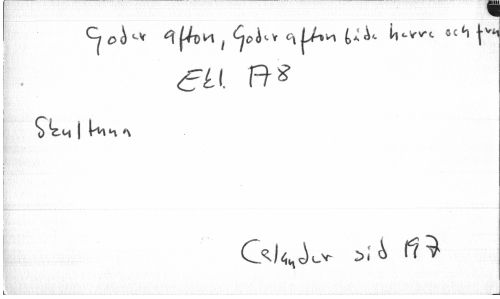 Goder afton, Goder afton både herre och fru
Ekl. 178
Skultuna
Celander sid 197